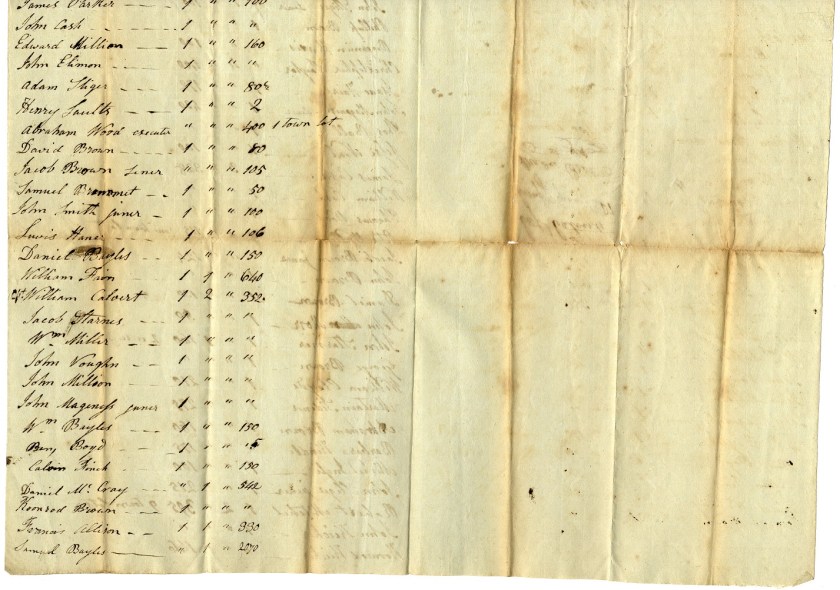 James Parker - - - 1 " " 100
John Cash - - - 1 " " "
Edward Million - - - 1 " " 160
John Elimon - - - - 1 " " "
Adam Sliger - - - 1 " " 80
Henry Saults - - - 1 " " 2
Abraham Wood execute " " " 400 1 town lot
David Brown - - - 1 " " 80
Jacob Brown Sener " " " 105
Samuel - - 1 " " 50
John Smith juner - 1 " " 100
Lewis - - - 1 " " 106
Daniel Bayles - - 1 " " 150
William - - - 1 1 " 640
William Calvert 1 2 " 352
Jacob Starnes - - - 1 " " "
Wm Miller - - - 1 " " "
John Voughn - - - 1 " " "
John Million - - - 1 " " "
John Mageness juner 1 " " "
Wm Bayles - - - 1 " " 150
Benj Boyd - - - 1 " " 5
Calvin Finch - - - 1 " " 130
Daniel Mc Cray - - - " 1 " 542
Konrod Brown - - - 1 " " "
Allison - - - 1 1 " 330
Samuel Bayles - - - " 1 " 2070